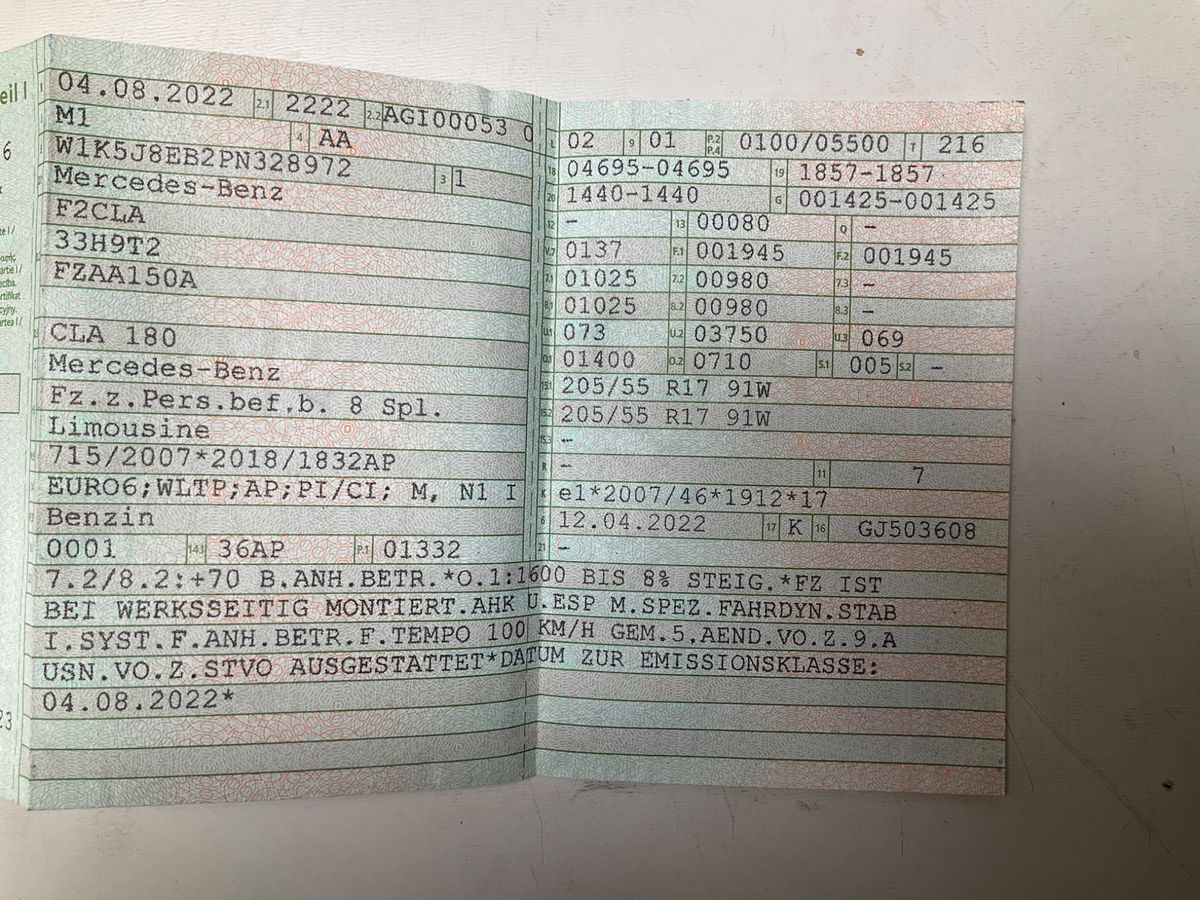 eil I
04.08.2022 2.1 2222 2.2 AGI00053 0
M1 4 AA
W1K5J8EB2PN328972 3 1
Mercedes-Benz
F2CLA
33H9T2
FZAA150A
CLA 180
Mercedes-Benz
Fz.z.Pers.bef.b. 8 Spl.
Limousine
715/2007*2018/1832AP
EURO6;WLTP;AP;PI/CI; M, N1 I
Benzin
0001 14.1 36AP P.1 01332
L 02 9 01 P.2 P.4 0100/05500 T 216
18 04695-04695 19 1857-1857
20 1440-1440 G 001425-001425
12 – 13 00080 Q –
V.7 0137 F.1 001945 F.2 001945
7.1 01025 7.2 00980 7.3 –
8.1 01025 8.2 00980 8.3 –
U.1 073 U.2 03750 U.3 069
O.1 01400 O.2 0710 S.1 005 S.2 –
15.1 205/55 R17 91W
15.2 205/55 R17 91W
15.3 –
R – 11 7
K e1*2007/46*1912*17
6 12.04.2022 17 K 16 GJ503608
21 –
7.2/8.2:+70 B.ANH.BETR.*O.1:1600 BIS 8% STEIG.*FZ IST
BEI WERKSSEITIG MONTIERT.AHK U.ESP M.SPEZ.FAHRDYN.STAB
I.SYST.F.ANH.BETR.F.TEMPO 100 KM/H GEM.5.AEND.VO.Z.9.A
USN.VO.Z.STVO AUSGESTATTET*DATUM ZUR EMISSIONSKLASSE:
04.08.2022*